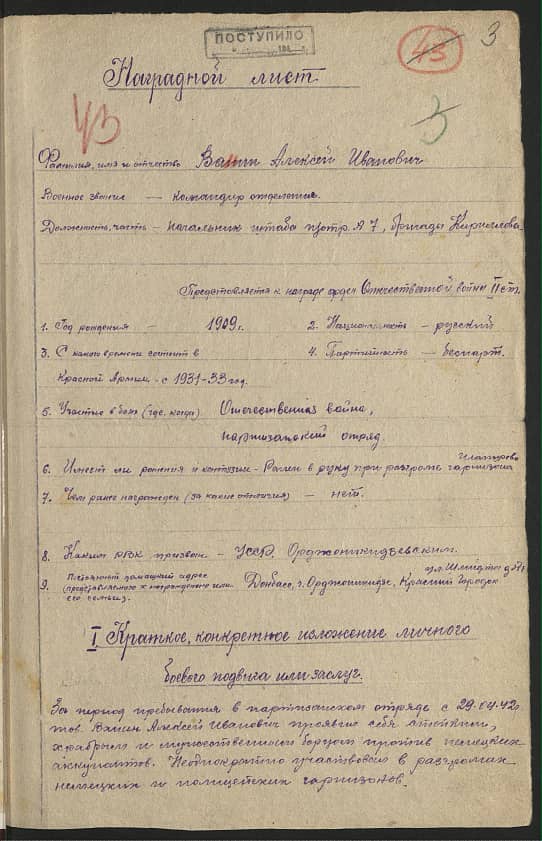 3
ПОСТУПИЛО
43
Наградной лист
43
3
Фамилия, имя и отчество Вашин Алексей Иванович
Военное звание — командир отделения.
Должность, часть — начальник штаба п/отр. № 7, бригады Кириллова
Представляется к награде орден Отечественной войны II ст.
1. Год рождения — 1909 г. 2. Национальность — русский
3. С какого времени состоит в 4. Партийность — беспарт.
Красной Армии. с 1931-33 год.
5. Участие в боях (где, когда) Отечественная война,
партизанский отряд.
6. Имеет ли ранения и контузии - Ранен в руку при разгроме гарнизона
7. Чем ранее награжден (за какие отличия) — нет.
8. Каким РВК призван — УССР, Орджоникидзевским.
ул. Шмидта д
9. Постоянный домашний адрес Донбасс, г. Орджоникидзе, Красный Городок
(представляемого к награждению или
его семьи).
I Краткое, конкретное изложение личного
боевого подвига или заслуг.
За период пребывания в партизанском отряде с 29.04.42г
тов. Вашин Алексей Иванович проявил себя стойким,
храбрым и мужественным борцом против немецких
оккупантов. Неоднократно участвовал в разгромах
немецких и полицейских гарнизонов.